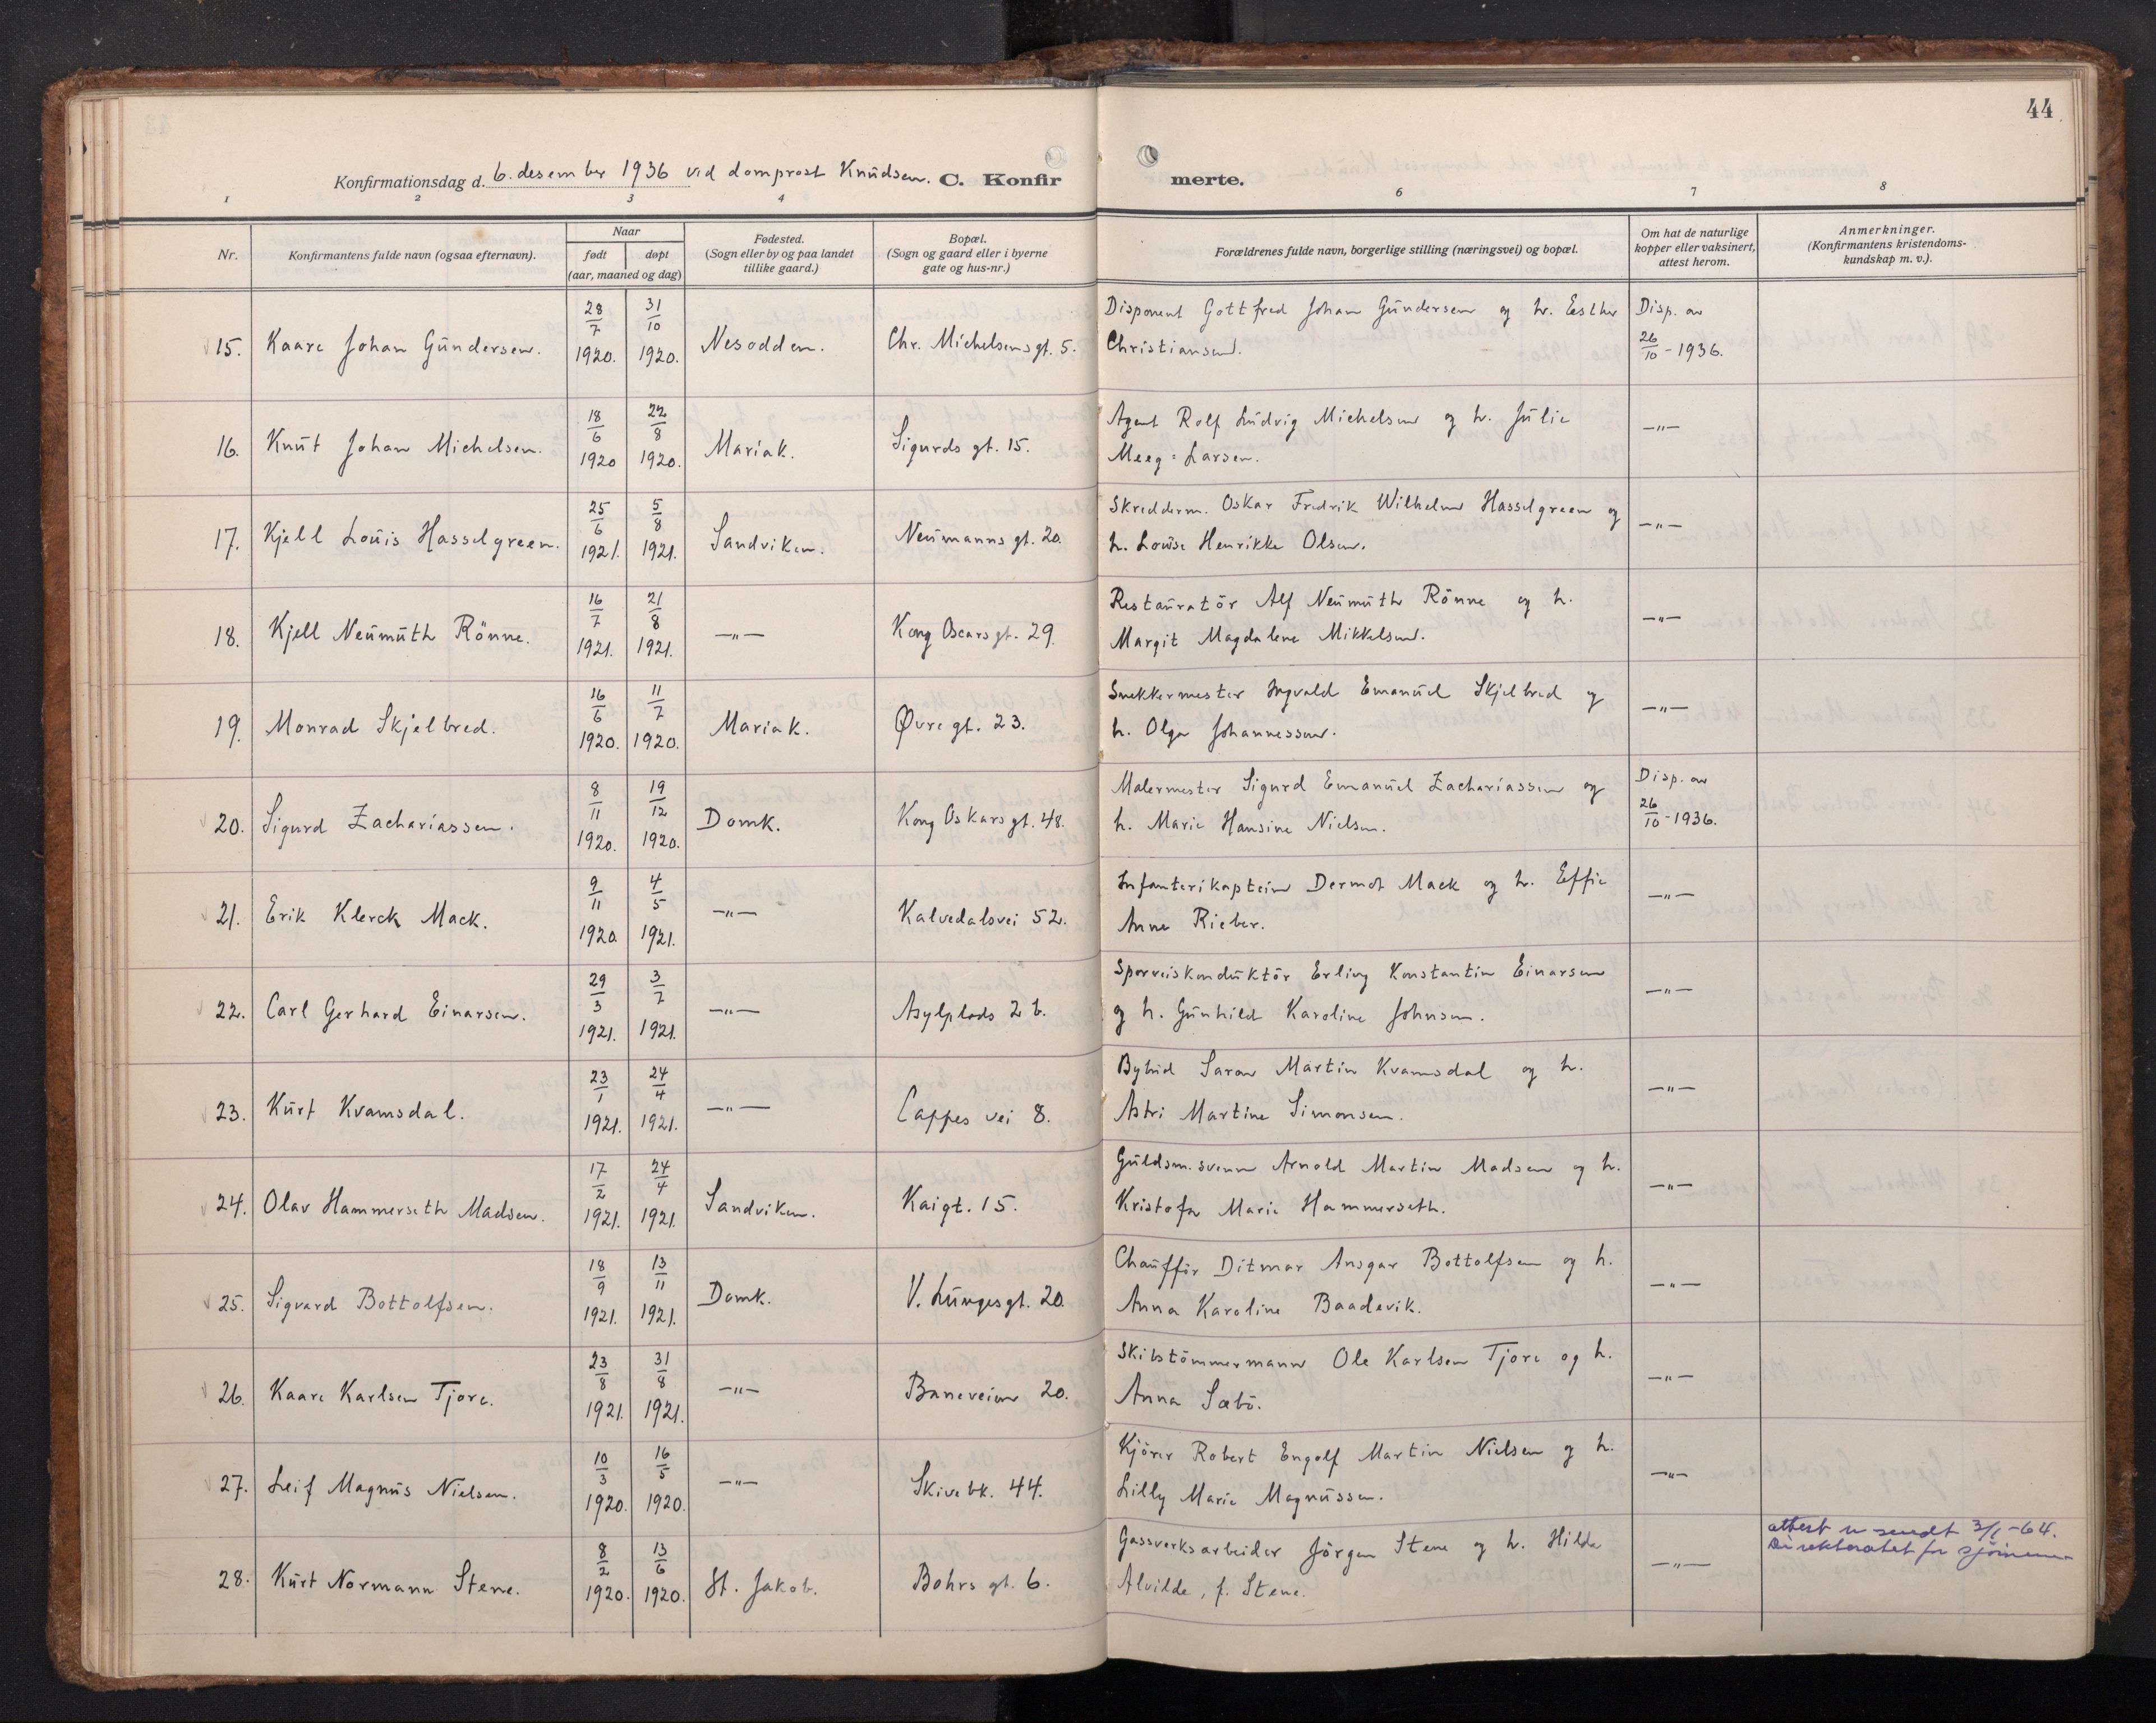 44
Konfirmationsdag d. 6. desember 1936 vid domprost Knudsen. C. Konfirmerte.
1 2 3 4 5 6 7 8
Nr. Konfirmantens fulde navn (ogsaa efternavn). Naar født døpt (aar, maaned og dag) Fødested. (Sogn eller by og paa landet tillike gaard.) Bopæl. (Sogn og gaard eller i byerne gate og hus-nr.) Forældrenes fulde navn, borgerlige stilling (næringsvei) og bopæl. Om hat de naturlige kopper eller vaksinert, attest herom. Anmerkninger. (Konfirmantens kristendoms-kundskap m. v.).
15. Kaare Johan Gundersen. 28/7 1920. 31/10 1920. Nesodden. Chr. Michelsens gt. 5. Disponent Gottfred Johan Gundersen og h. Esther Christiansen. Disp. av 26/10 - 1936.
16. Knut Johan Michelsen. 18/6 1920 22/8 1920. Mariak. Sigurds gt. 15. Agent Rolf Ludvig Michelsen og h. Julie Meeg=Larsen. —"—
17. Kjell Louis Hasselgreen. 25/6 1921. 5/8 1921. Sandviken. Neumanns gt. 20. Skredderm. Oskar Fredrik Wilhelm Hasselgreen og h. Louise Henrikke Olsen. —"—
18. Kjell Neumuth Rönne. 16/7 1921. 21/8 1921. —"— Kong Oscars gt. 29. Restauratör Alf Neumuth Rönne og h. Margit Magdalene Mikkelsen. —"—
19. Monrad Skjelbred. 16/6 1920. 11/7 1920. Mariak. Øvre gt. 23. Snekkermester Ingvald Emanuel Skjelbred og h. Olga Johannessen. —"—
20. Sigurd Zachariassen. 8/11 1920. 19/12 1920. Domk. Kong Oskars gt. 48. Malermester Sigurd Emanuel Zachariassen og h. Marie Hansine Nielsen. Disp. av 26/10 - 1936.
21. Erik Klerck Mack. 9/11 1920 4/5 1921. —"— Kalvedalsvei 52. Infanterikaptein Dermot Mack og h. Effie Anne Rieber. —"—
22. Carl Gerhard Einarsen. 29/3 1921. 3/7 1921. —"— Asylplads 2 b. Sporveiskonduktör Erling Konstantin Einarsen og h. Gunhild Karoline Johnsen. —"—
23. Kurt Kvamsdal. 23/1 1921. 24/4 1921. —"— Cappes vei 8. Bybud Saron Martin Kvamsdal og h. Astri Martine Simonsen. —"—
24. Olav Hammerseth Madsen. 17/2 1921. 24/4 1921. Sandviken. Kaigt. 15. Guldsm.svenn Arnold Martin Madsen og h. Kristofa Marie Hammerseth. —"—
25. Sigvard Bottolfsen. 18/9 1921. 13/11 1921. Domk. V. Lungesgt. 20. Chaufför Ditmar Ansgar Bottolfsen og h. Anna Karoline Baadsvik. —"—
26. Kaare Karlsen Tjore. 23/8 1921. 31/8 1921. —"— Baneveien 20. Skibstömmermann Ole Karlsen Tjore og h. Anna Sæbö. —"—
27. Leif Magnus Nielsen. 10/3 1920. 16/5 1920. —"— Skivebk. 44. Kjörer Robert Engolf Martin Nielsen og h. Lilly Marie Magnussen. —"—
28. Kurt Normann Stene. 8/2 1920. 13/6 1920. St. Jakob. Bohrs gt. 6. Gassverksarbeider Jörgen Stene og h. Hilda Alvilde, f. Stene. —"— attest sendt 3/1-64. Direktoratet for sjömenn